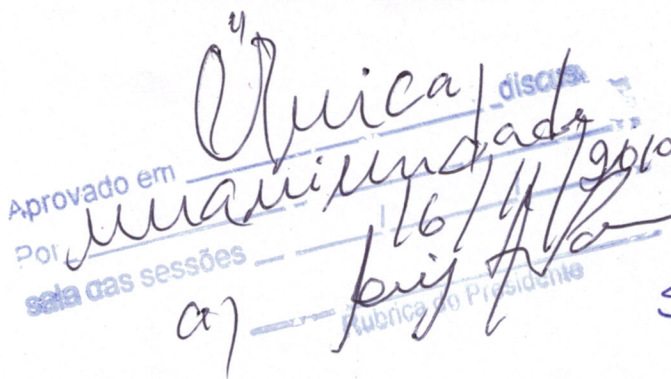 Aprovado em Única discus
Por unanimidade
sala das sessões 16/11/2010
a)
Rubrica do Presidente